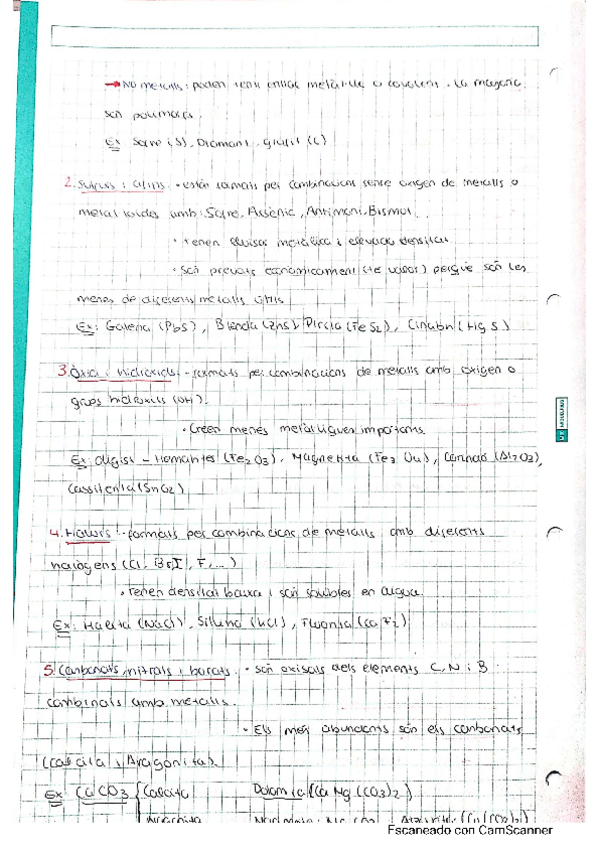 → No metalls: poden tenir enllaç metàl·lic o covalent. La majoria
són polimorfs.
Ex Sofre (S), Diamant, grafit (C)
2. Sulfurs i afins · están formats per combinacions sense oxigen de metalls o
metal·loides amb: Sofre, Arsènic, Antimoni, Bismut...
· Tenen lluïsor metàl·lica i elevada densitat
· Són preuats econòmicament (te valor) perquè són les
menes de diferents metalls útils
Ex: Galena (PbS), Blenda (ZnS), Pirita (FeS2), Cinabri (HgS)
3. Òxids i hidròxids · formats per combinacions de metalls amb oxigen o
grups hidroxils (OH).
· Creen menes metal·lúrgiques importants
Ex: Oligist – Hematites (Fe2O3), Magnetita (Fe3O4), Corindó (Al2O3),
Cassiterita (SnO2)
4. Halurs · formats per combinacions de metalls amb diferents
halògens (Cl, Br, I, F, ...)
· Tenen densitat baixa i són solubles en aigua.
Ex: Halita (NaCl), Silvina (KCl), Fluorita (CaF2)
5. Carbonats, nitrats i borats · són oxisals dels elements C, N i B
combinats amb metalls.
· Els més abundants són els carbonats
(Calcita i Aragonita).
Ex CaCO3 { Calcita Dolomia (CaMg(CO3)2)
Aragonita
Escaneado con CamScanner